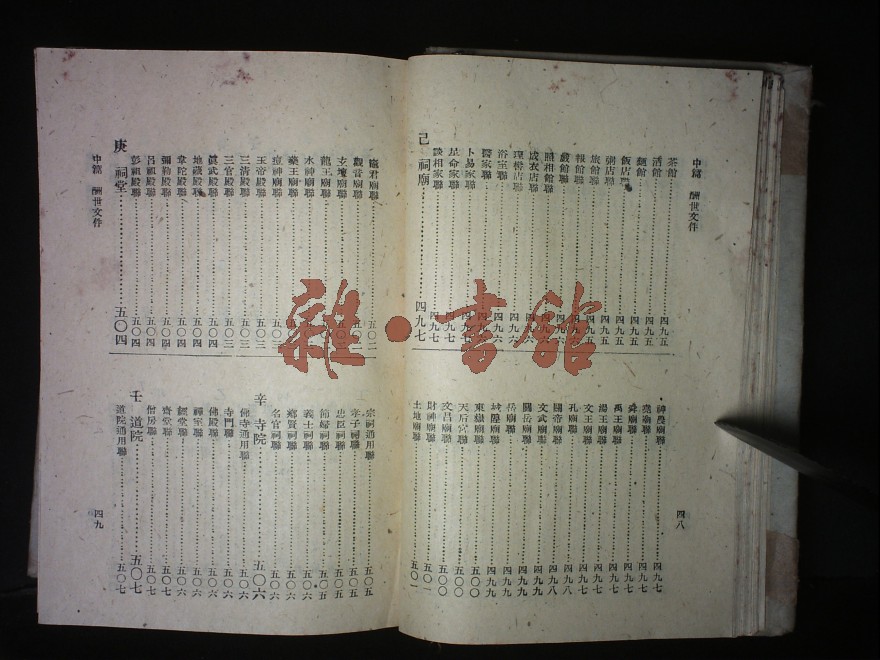 中篇 酬世文件
茶館…………四九五
酒館…………四九五
麵館…………四九五
飯店聯…………四九五
粥店聯…………四九五
旅館聯…………四九五
報館聯…………四九五
戲館聯…………四九六
照相館聯…………四九六
成衣店聯…………四九六
理髮店聯…………四九六
浴室聯…………四九六
醫家聯…………四九七
卜易家聯…………四九七
星命家聯…………四九七
談相家聯…………四九七
己 祠廟…………四九七
神農廟聯…………四九七
堯廟聯…………四九七
舜廟聯…………四九七
禹王廟聯…………四九七
湯王廟聯…………四九七
文王廟聯…………四九七
孔廟聯…………四九八
關帝廟聯…………四九八
文武廟聯…………四九九
關岳廟聯…………四九九
岳廟聯…………四九九
城隍廟聯…………四九九
東嶽廟聯…………五〇〇
天后宮聯…………五〇〇
文昌廟聯…………五〇〇
財神廟聯…………五〇一
土地廟聯…………五〇一
四八
竈君廟聯…………五〇二
觀音廟聯…………五〇二
玄壇廟聯…………五〇二
龍王廟聯…………五〇二
水神廟聯…………
藥王廟聯…………
痘神廟聯…………五〇三
玉帝殿聯…………五〇三
三清殿聯…………五〇三
三官殿聯…………五〇三
眞武殿聯…………五〇四
地藏殿聯…………五〇四
韋陀殿聯…………五〇四
彌勒殿聯…………五〇四
呂祖殿聯…………五〇四
彭祖殿聯…………五〇四
庚 祠堂…………五〇四
中篇 酬世文件
宗祠通用聯…………五〇五
孝子祠聯…………五〇五
忠臣祠聯…………五〇五
節婦祠聯…………五〇五
義士祠聯…………五〇六
鄉賢祠聯…………五〇六
名宦祠聯…………五〇六
辛 寺院…………五〇六
佛寺通用聯…………五〇六
寺門聯…………五〇六
佛殿聯…………五〇六
禪室聯…………五〇六
經堂聯…………五〇六
齋堂聯…………五〇七
僧房聯…………五〇七
壬 道院…………五〇七
道院通用聯…………五〇七
四九
雜·書館